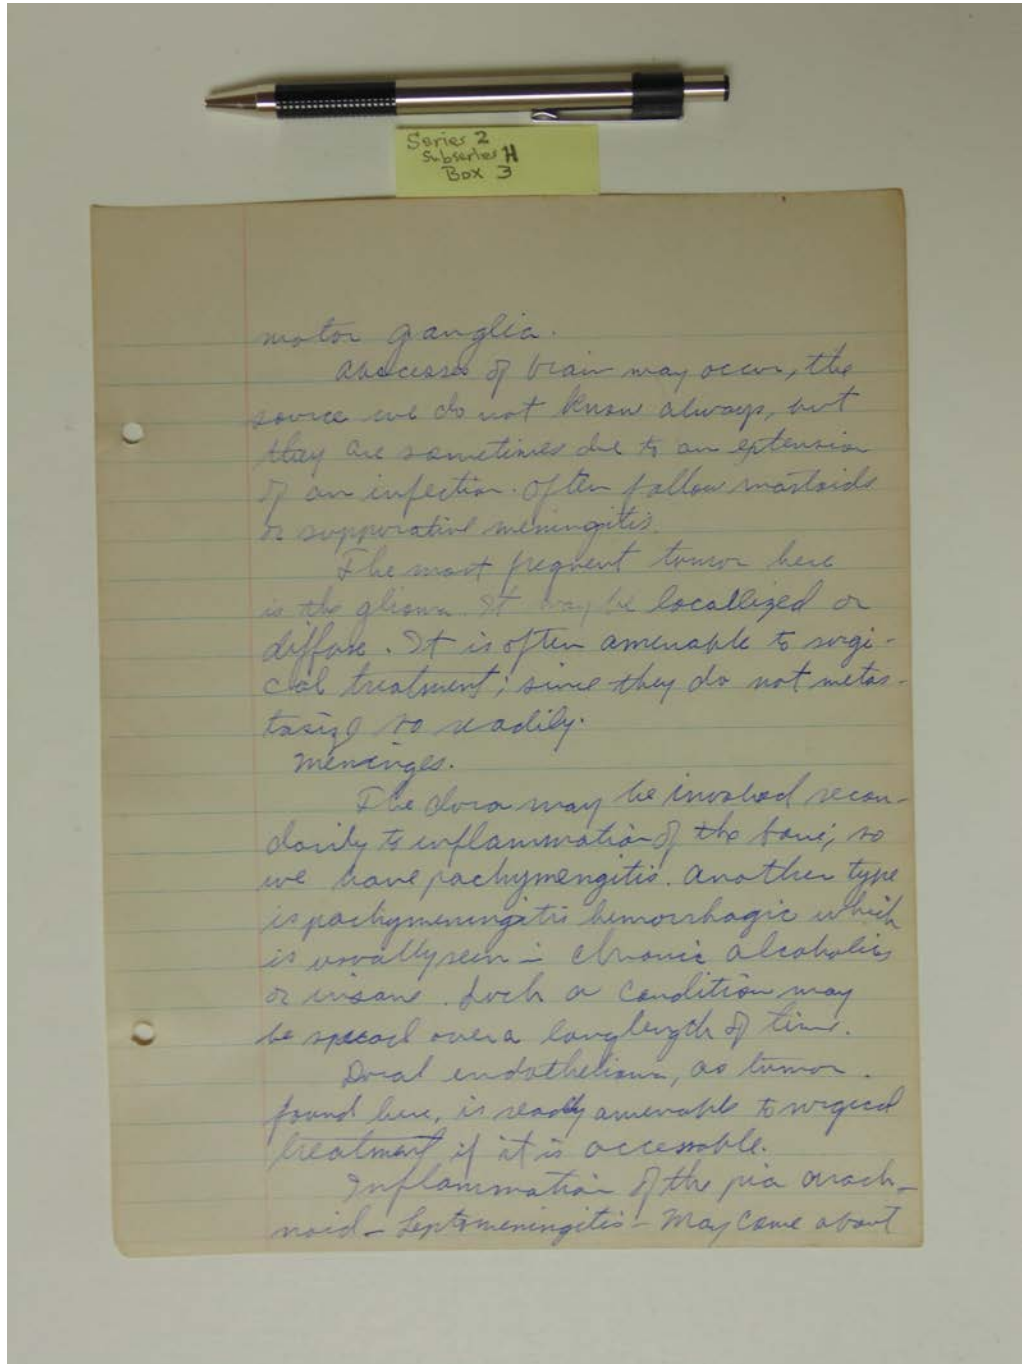 Series 2
Subseries H
Box 3
motor ganglia.
Abscesses of brain may occur, the
source we do not know always, but
they are sometimes due to an extension
of an infection. Often follow mastoids
or suppurative meningitis.
The most frequent tumor here
is the glioma. It may be locallized or
diffuse. It is often amenable to surgi-
cal treatment; since they do not metas-
tasize so readily.
Meninges.
The dura may be involved secon-
darily to inflammation of the bone, so
we have pachymengitis. Another type
is pachymeningitis hemorrhagic which
is usually seen in chronic alcoholics
or insane. Such a condition may
be spread over a long length of time.
Dural endothelioma, as tumor
found here, is readly amenable to surgical
treatment if it is accessable.
Inflammation of the pia arach-
noid - Leptomeningitis - May come about